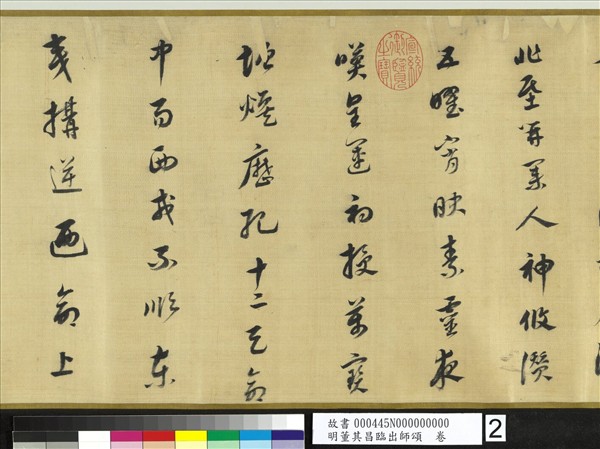 兆基開業人神攸讚
五曜宵映素靈夜
嘆皇運初授萬寶
增煥歷紀十二天命
中易西戎不順東
夷搆逆迺命上
宣統御覽之寶
故書 000445N000000000
明董其昌臨出師頌 卷
2